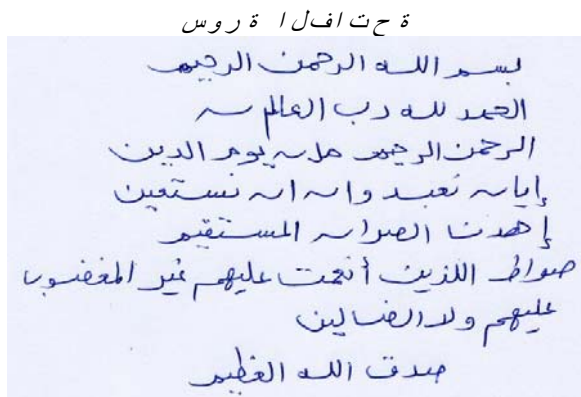 سورة الفاتحة
بسم الله الرحمن الرحيم
الحمد لله رب العالمين
الرحمن الرحيم ملك يوم الدين
إياك نعبد وإياك نستعين
إهدنا الصراط المستقيم
صراط اللذين أنعمت عليهم غير المغضوب
عليهم ولا الضالين
صدق الله العظيم